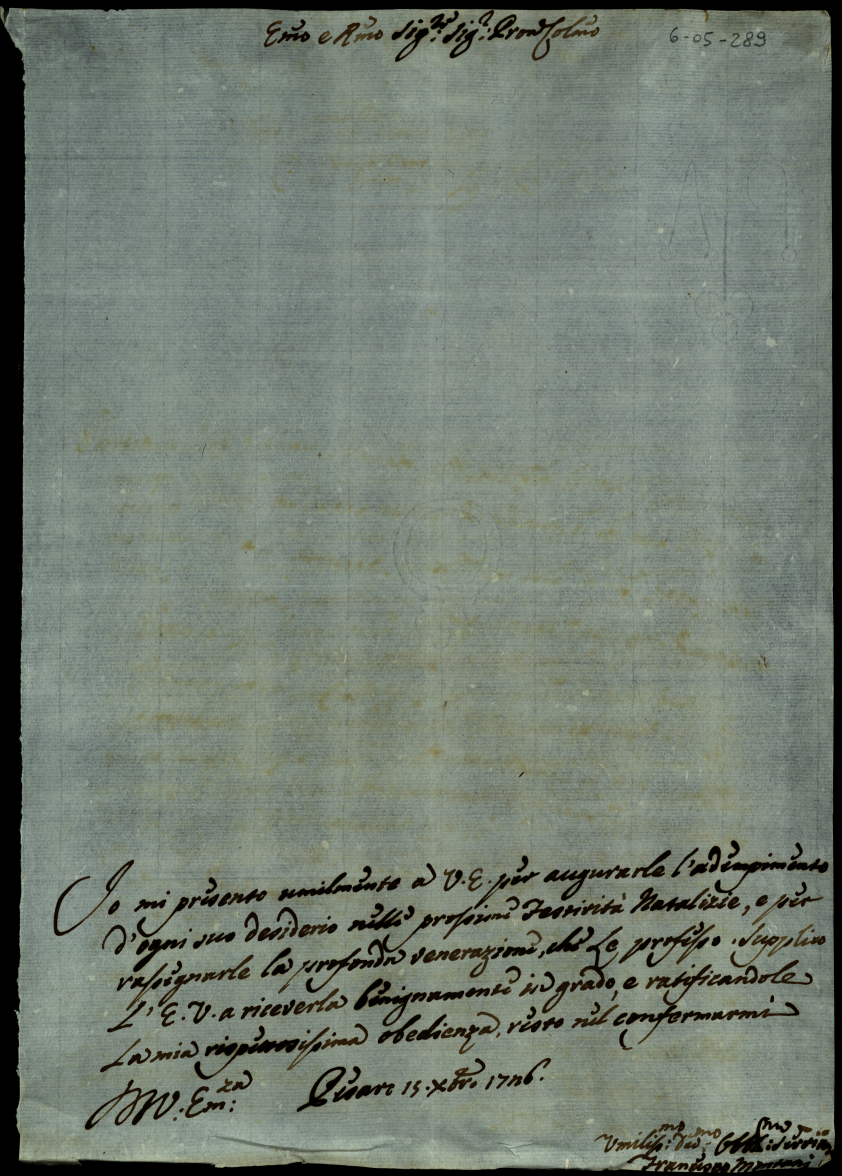 Emo e Rmo Sig.re Sig.r Pron Colmo
6-05-289
Io mi presento umilmente a V.E. per augurarle l'adempimento
d'ogni suo desiderio nelle prossime Festività Natalizie, e per
rassegnarle la profonda venerazione, che Le professo. Supplico
L'E.V. a riceverla benignamente in grado, e ratificandole
La mia rispettosissima obedienza, resto nel confermarmi
Di V. Em:za Pesaro 15. Xbre 1746.
Umiliss:mo Dev:mo Obbl:mo Servir
Francesco